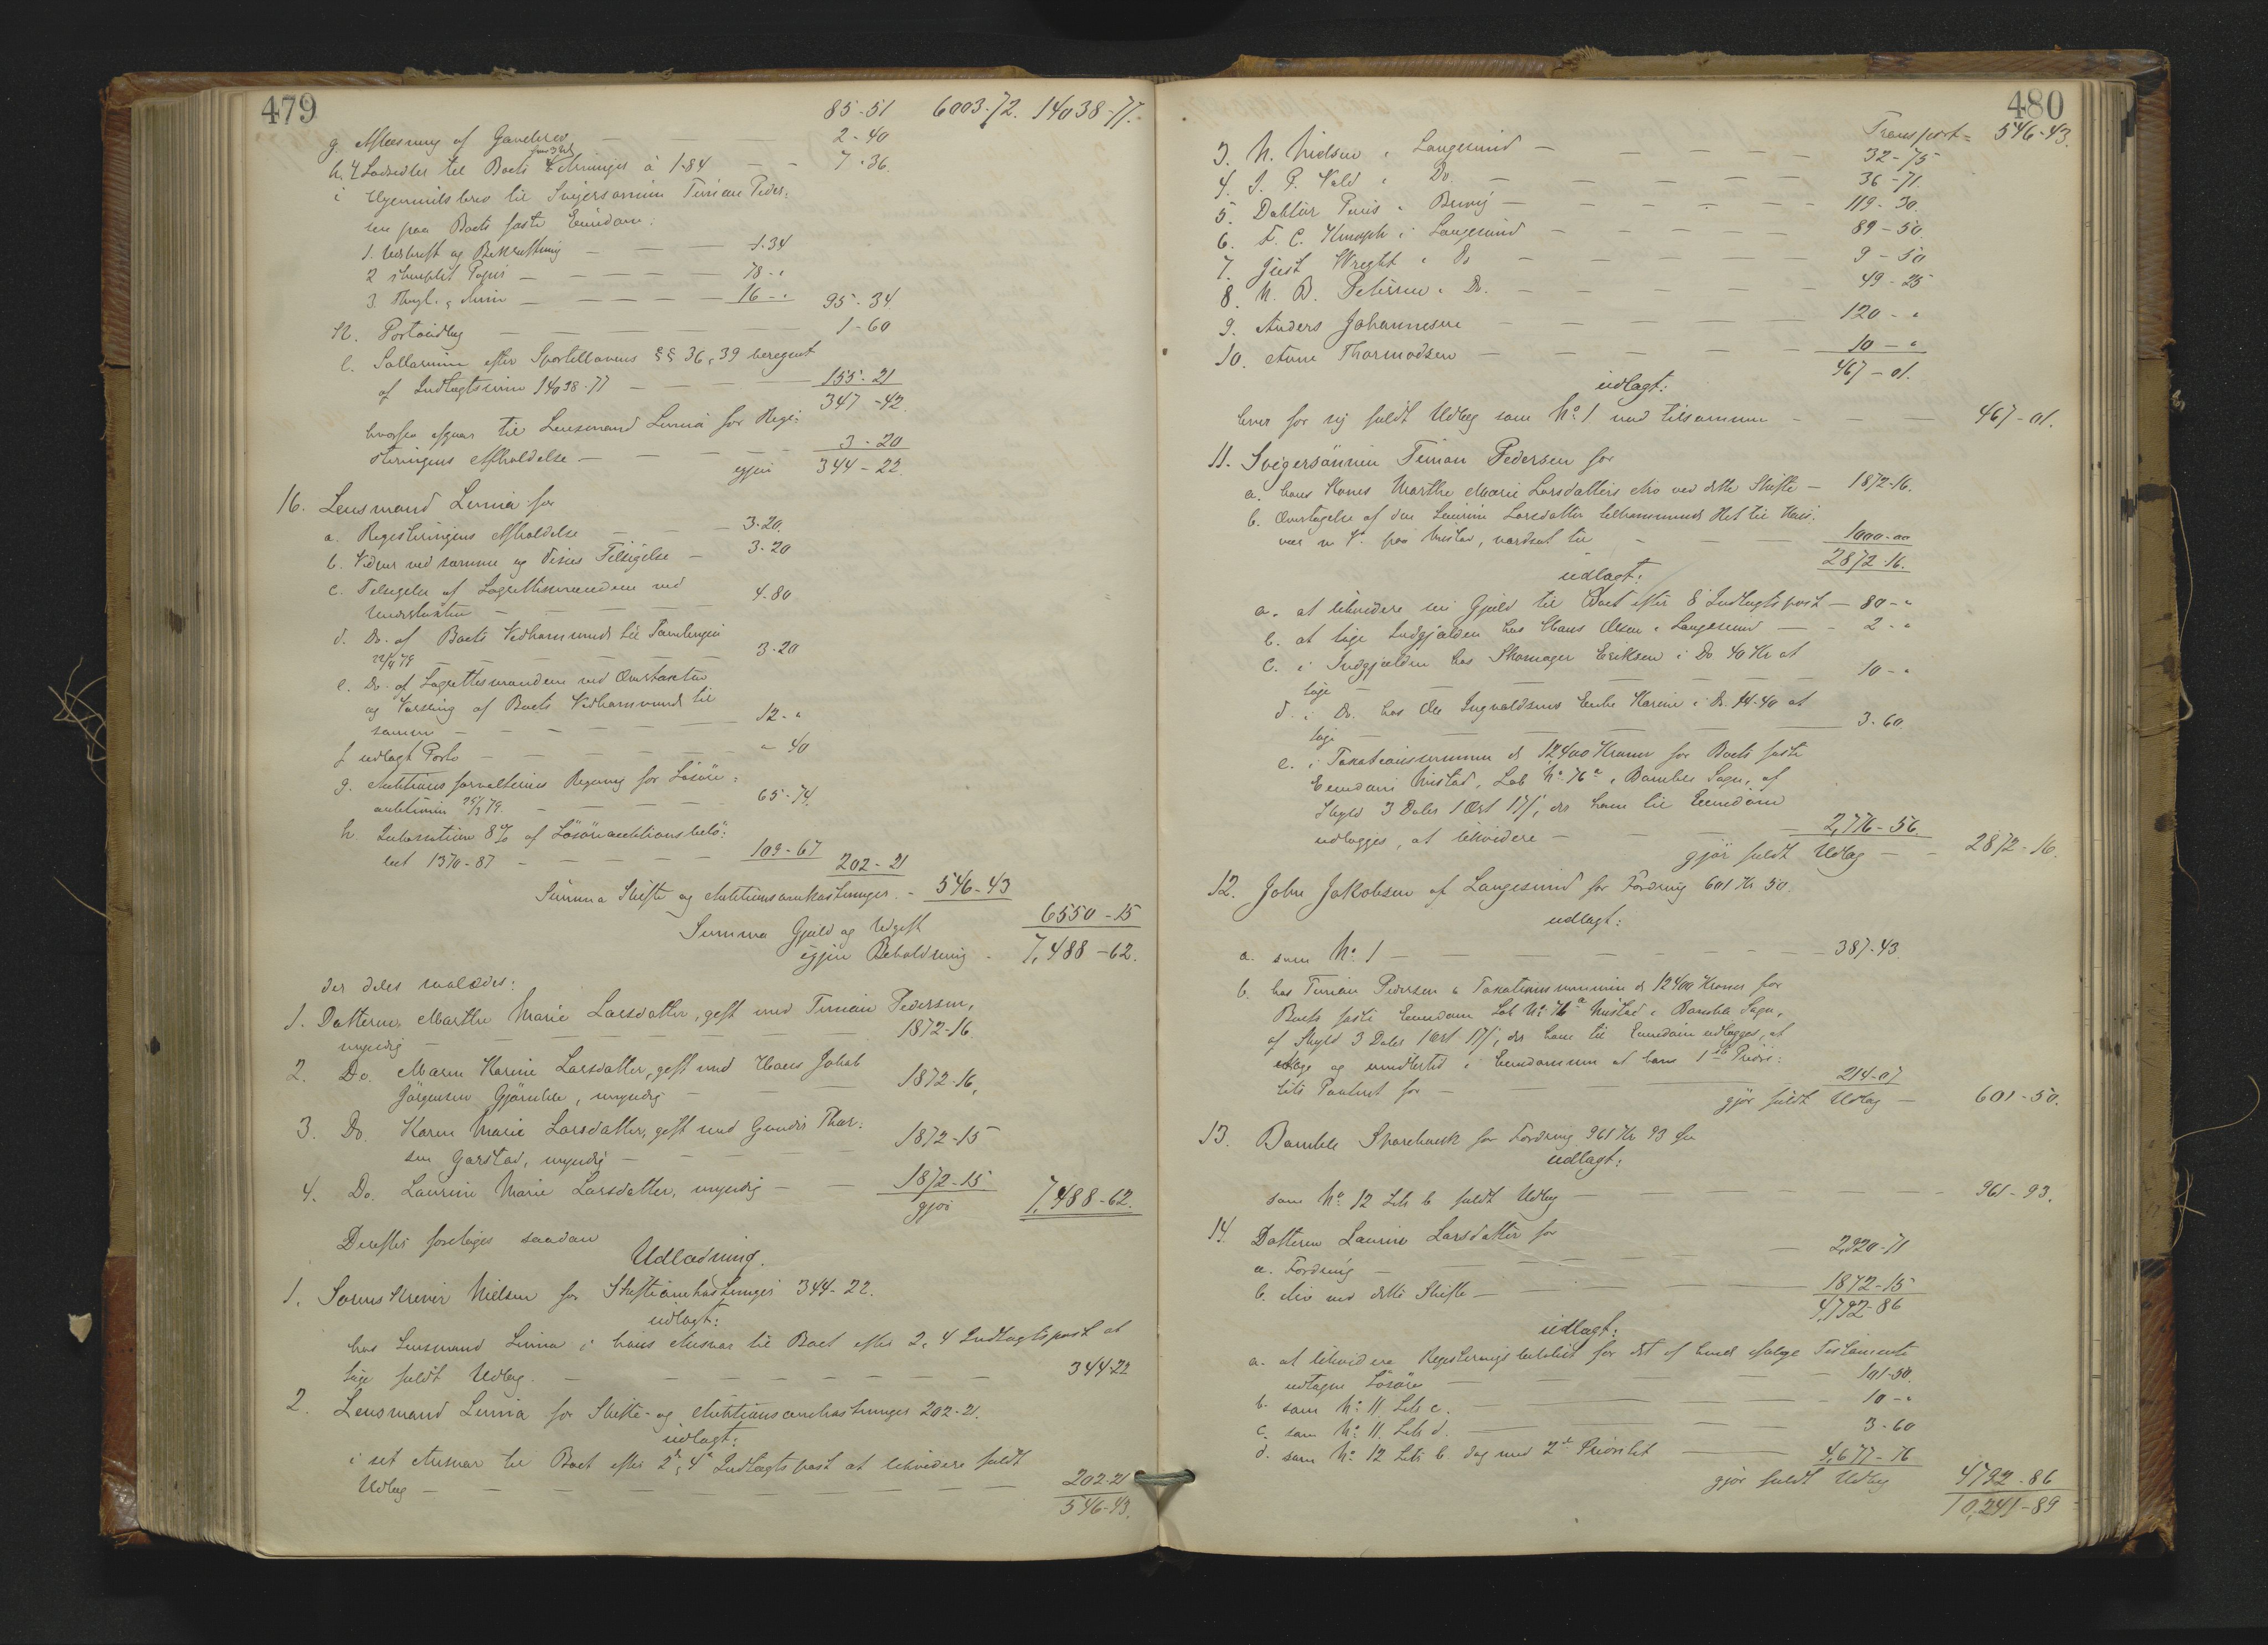 479
85-51 6003-72. 14038-77.
g. Aflæsning af Gavebrev — — — 2-40
h. 4 Lodsedler til Boets 4 Arvinger à 1-84 — — 7-36.
i Hjemmelsbrev til Svigersønnen Timian Peder-
sen paa Boets faste Eiendom:
1. Udskrift og Bekræftning — — — 1.34
2 stemplet Papir — — — — 78-"
3. Thingl. — — — — 16-" 95-34
k. Portoudlæg — — — — 1-60
l. Sallarium efter Sportellovens §§ 36, 39 beregnet
af Indtægtssum 14038-77 — — — 155-21
347-42.
hvorfra afgaar til Lensmand Linna for Regi-
streringens Afholdelse — — — — 3-20
igjen 344-22
16. Lensmand Linna for
a. Registreringens Afholdelse — — 3-20.
b. Vidner ved samme og disses Tilsigelse — 3-20
c. Tilsigelse af Lagrettesmændene ved
Undertaxten — — — — 4-80
d. Do. af Boets Vedkommende til Samlingen
22/4 79 — — — — 3-20
e. Do. af Lagrettesmændene ved Overtaxten
og Varsling af Boets Vedkommende til
samme — — — — 12-"
f udlagt Porto — — — — "-40
g. Auktionsforvalterens Regning for Løsøre-
auktionen 25/3 79. — — — — 65-74.
h. Inkassation 8 % af Løsøreauktionsbelø-
bet 1370-87 — — — — 109-67 202-21
Summa Skifte og Auktionsomkostninger. - 546-43
6550-15
Summa Gjæld og Udgift
igjen Beholdning - 7,488-62.
der deles saaledes:
1. Datteren Marthe Marie Larsdatter, gift med Timian Pedersen,
myndig — — — — 1872-16.
2. Do. Maren Karine Larsdatter, gift med Hans Jakob
Jørgensen Gjømle, myndig — — — 1872-16,
3. Do. Karen Marie Larsdatter, gift med Gunder Thor-
sen Garstad, myndig — — — 1872-15
4. Do. Laurine Marie Larsdatter, myndig — — 1872-15
gjør 7,488-62.
Derefter foretages saadan
Udlodning.
1. Sorenskriver Nielsen for Skifteomkostninger 344-22.
udlagt:
hos Lensmand Linna i hans Ansvar til Boet efter 2, 4 Indtægtspost at
tage fuldt Udlæg. — — — — — 344-22
2. Lensmand Linna for Skifte- og Auktionsomkostninger 202-21.
udlagt:
i sit Ansvar til Boet efter 2, 4 Indtægtspost at likvidere fuldt
Udlæg — — — — — 202-21
546-43.
480
Transport = 546-43.
3. N. Nielsen i Langesund — — — 32-75
4. J. P. Vold i Do. — — — 36-71.
5. Doktor Paus i Brevig — — — 119-30.
6. F. C. Knoph i Langesund — — — 89-50.
7. Just Wright i Do — — — 9-50
8. N. B. Petersen i Do. — — — 49-25
9. Anders Johannesen — — — 120-"
10. Anne Thormodsen — — — 10-"
467-01.
udlagt:
hver for sig fuldt Udlæg som No 1 med tilsammen — — — 467-01.
11. Svigersønnen Timian Pedersen for
a. hans Kones Marthe Marie Larsdatters Arv ved dette Skifte — 1872-16.
b. Overtagelse af den Laurine Larsdatter tilkommende Ret til Huus-
vær m. V. paa Mustad, værdsat til — — — 1000-00
2872-16.
udlagt:
a. at likvidere sin Gjæld til Boet efter 8 Indtægtspost — 80-"
b. at tage Indgjælden hos Hans Olsen i Langesund — — 2-"
c. i Indgjælden hos Skomager Eriksen i Do 40 Kr at
tage — — — — 10-"
d. i Do. hos Ole Ingvaldsens Enke Karine i Do. 14-40 at
tage — — — — 3-60
e. i Taxationssummen de 12400 Kroner for Boets faste
Eiendom Mustad, Løb No 76 a i Bamble Sogn, af
Skyld 3 Daler 1 Ort 17 ß, der ham til Eiendom
udlægges, at likvidere — — — 2,776-56.
gjør fuldt Udlæg — — 2872-16.
12. John Jakobsen af Langesund for Fordring 601 Kr 50.
udlagt:
a. som No 1 — — — — 387-43.
b. hos Timian Pedersen i Taxationssummen de 12400 Kroner for
Boets faste Eiendom Løb No 76 a Mustad i Bamble Sogn,
af Skyld 3 Daler 1 Ort 17 ß, der ham til Eiendom udlægges, at
tage og imidlertid i Eiendommen at have 1ste Priori-
tets Panteret for — — — 214-07
gjør fuldt Udlæg — 601-50.
13. Bamble Sparebank for Fordring 961 Kr 93 Øre
udlagt:
som No 12 Litr b fuldt Udlæg — — — 961-93.
14. Datteren Laurine Larsdatter for
a. Fordring — — — 2,920-71
b. Arv ved dette Skifte — — — 1872-15
4,792-86
udlagt:
a. at likvidere Registreringsbeløbet for det af hende ifølge Testamente
udtagne Løsøre — — — 101-50.
b. som No 11 Litr c. — — — 10-"
c. som No 11. Litr d. — — — 3-60
d. som No 12 Litr b dog med 2den Prioritet — — 4,677-76
gjør fuldt Udlæg 4792-86
10,241-89